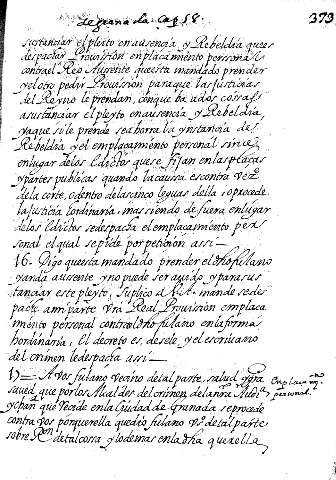 de granada Cap. 58. 373
sustanciar el pleito en ausencia y Rebeldia que es
despachar Provission en placamiento personal
contra el Reo Aussente questa mandado prender
y el otro pedir Provission para que las Justicias
del Reyno le prendan, con que ba a dos cossas
a sustanciar el pleyto en ausencia y Rebeldia
y a que si le prende se ahorra la ynstancia del
Rebeldia y el emplaçamiento personal sirve
en lugar de los Edictos que se fijan en las plaças
y partes publicas quando la caussa es contra Vezº
de la corte, o dentro de las cinco leguas della, o procede
la Justicia hordinaria, mas siendo de fuera en lugar
de los Edictos se despacha el emplaçamiento per
sonal el qual se pide por petición assi
16. Digo questa mandado prender el dho fulano
y anda aussente y no puede ser auido y para sus
tanciar este pleyto, suplico a V. A. mande se des
pache a mi parte Vra Real Provision emplaca
miento personal contra el dho fulano en la forma
hordinaria, el decreto es, desele, y el escrivano
del crimen le despacha assi
17 = A vos fulano vecino de tal parte, salud y gra
saved que por los Alcaldes del crimen de la nra Audiª
y chanª que Reside en la ciudad de Granada se procede
contra vos por querella que dio fulano Vº de tal parte
sobre Rºn de tal cossa y lo demas en la dha querella
Emplacamyº
personal.